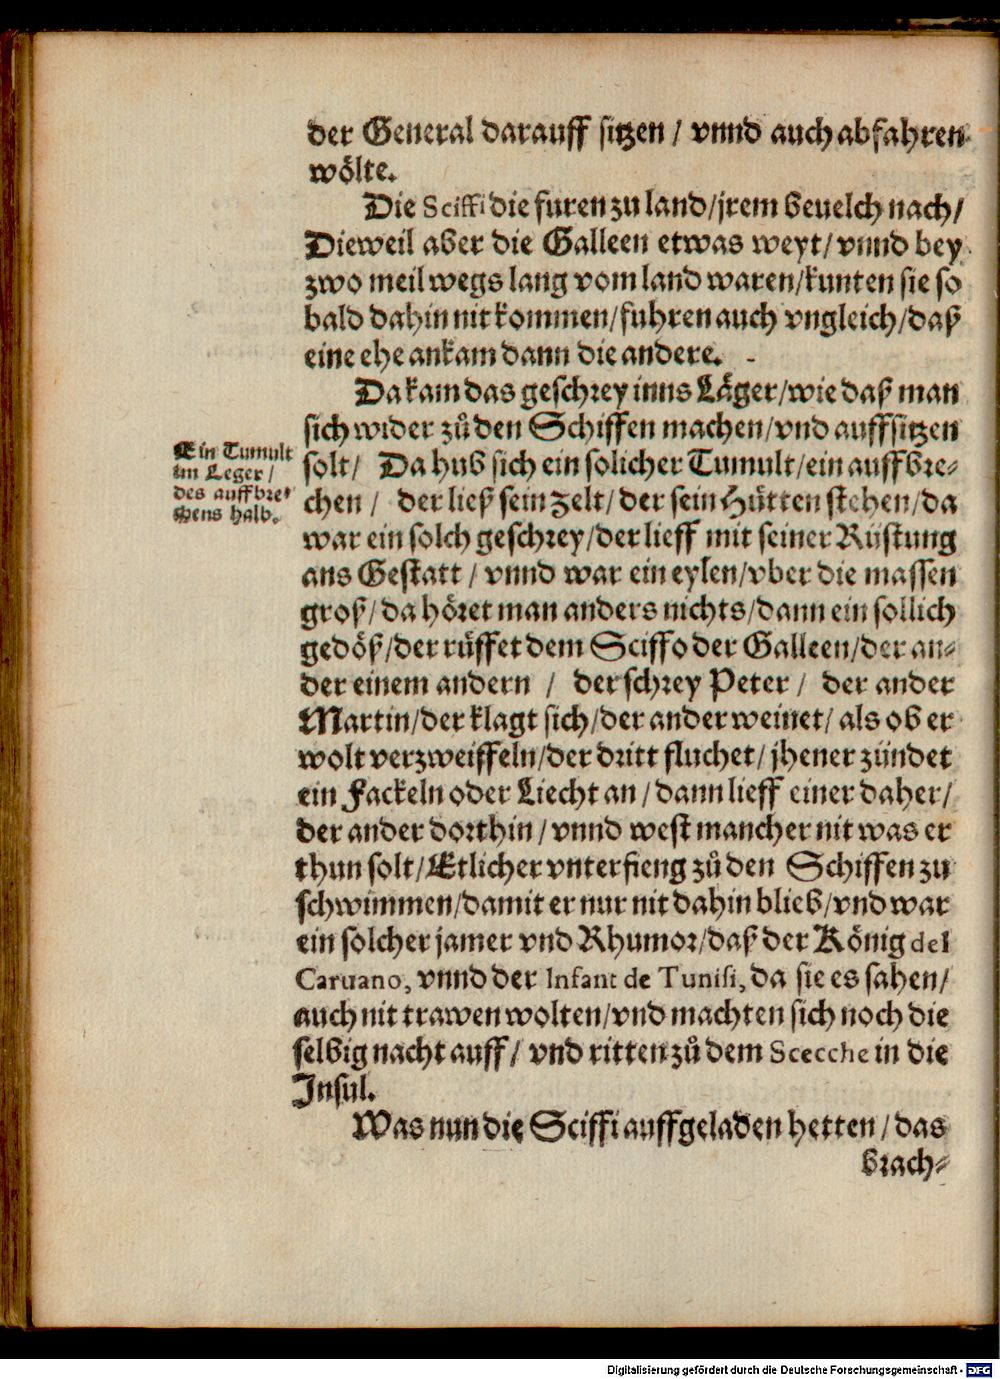 der General darauff sitzen / vnnd auch abfahren
wölte.
Die Sciffi die furen zu land / jrem beuelch nach /
Dieweil aber die Galleen etwas weyt / vnnd bey
zwo meil wegs lang vom land waren / kunten sie so
bald dahin nit kommen / fuhren auch vngleich / daß
eine ehe ankam dann die andere.
Da kam das geschrey inns Läger / wie daß man
sich wider zů den Schiffen machen / vnd auffsitzen
Ein Tumult
im Leger /
des auffbre-
chens halb.
solt / Da hub sich ein solicher Tumult / ein auffbre-
chen / der ließ sein Zelt / der sein Hütten stehen / da
war ein solch geschrey / der lieff mit seiner Rüstung
ans Gestatt / vnnd war ein eylen / vber die massen
groß / da höret man anders nichts / dann ein sollich
gedöß / der rüffet dem Sciffo der Galleen / der an-
der einem andern / der schrey Peter / der ander
Martin / der klagt sich / der ander weinet / als ob er
wolt verzweiffeln / der dritt fluchet / jhener zündet
ein Fackeln oder Liecht an / dann lieff einer daher /
der ander dorthin / vnnd west mancher nit was er
thun solt / Etlicher vnterfieng zů den Schiffen zu
schwimmen / damit er nur nit dahin blieb / vnd war
ein solcher jamer vnd Rhumor / daß der König del
Caruano, vnnd der Infant de Tunisi, da sie es sahen /
auch nit trawen wolten / vnd machten sich noch die
selbig nacht auff / vnd ritten zů dem Scecche in die
Insul.
Was nun die Sciffi auffgeladen hetten / das
brach-
Digitalisierung gefördert durch die Deutsche Forschungsgemeinschaft - DFG